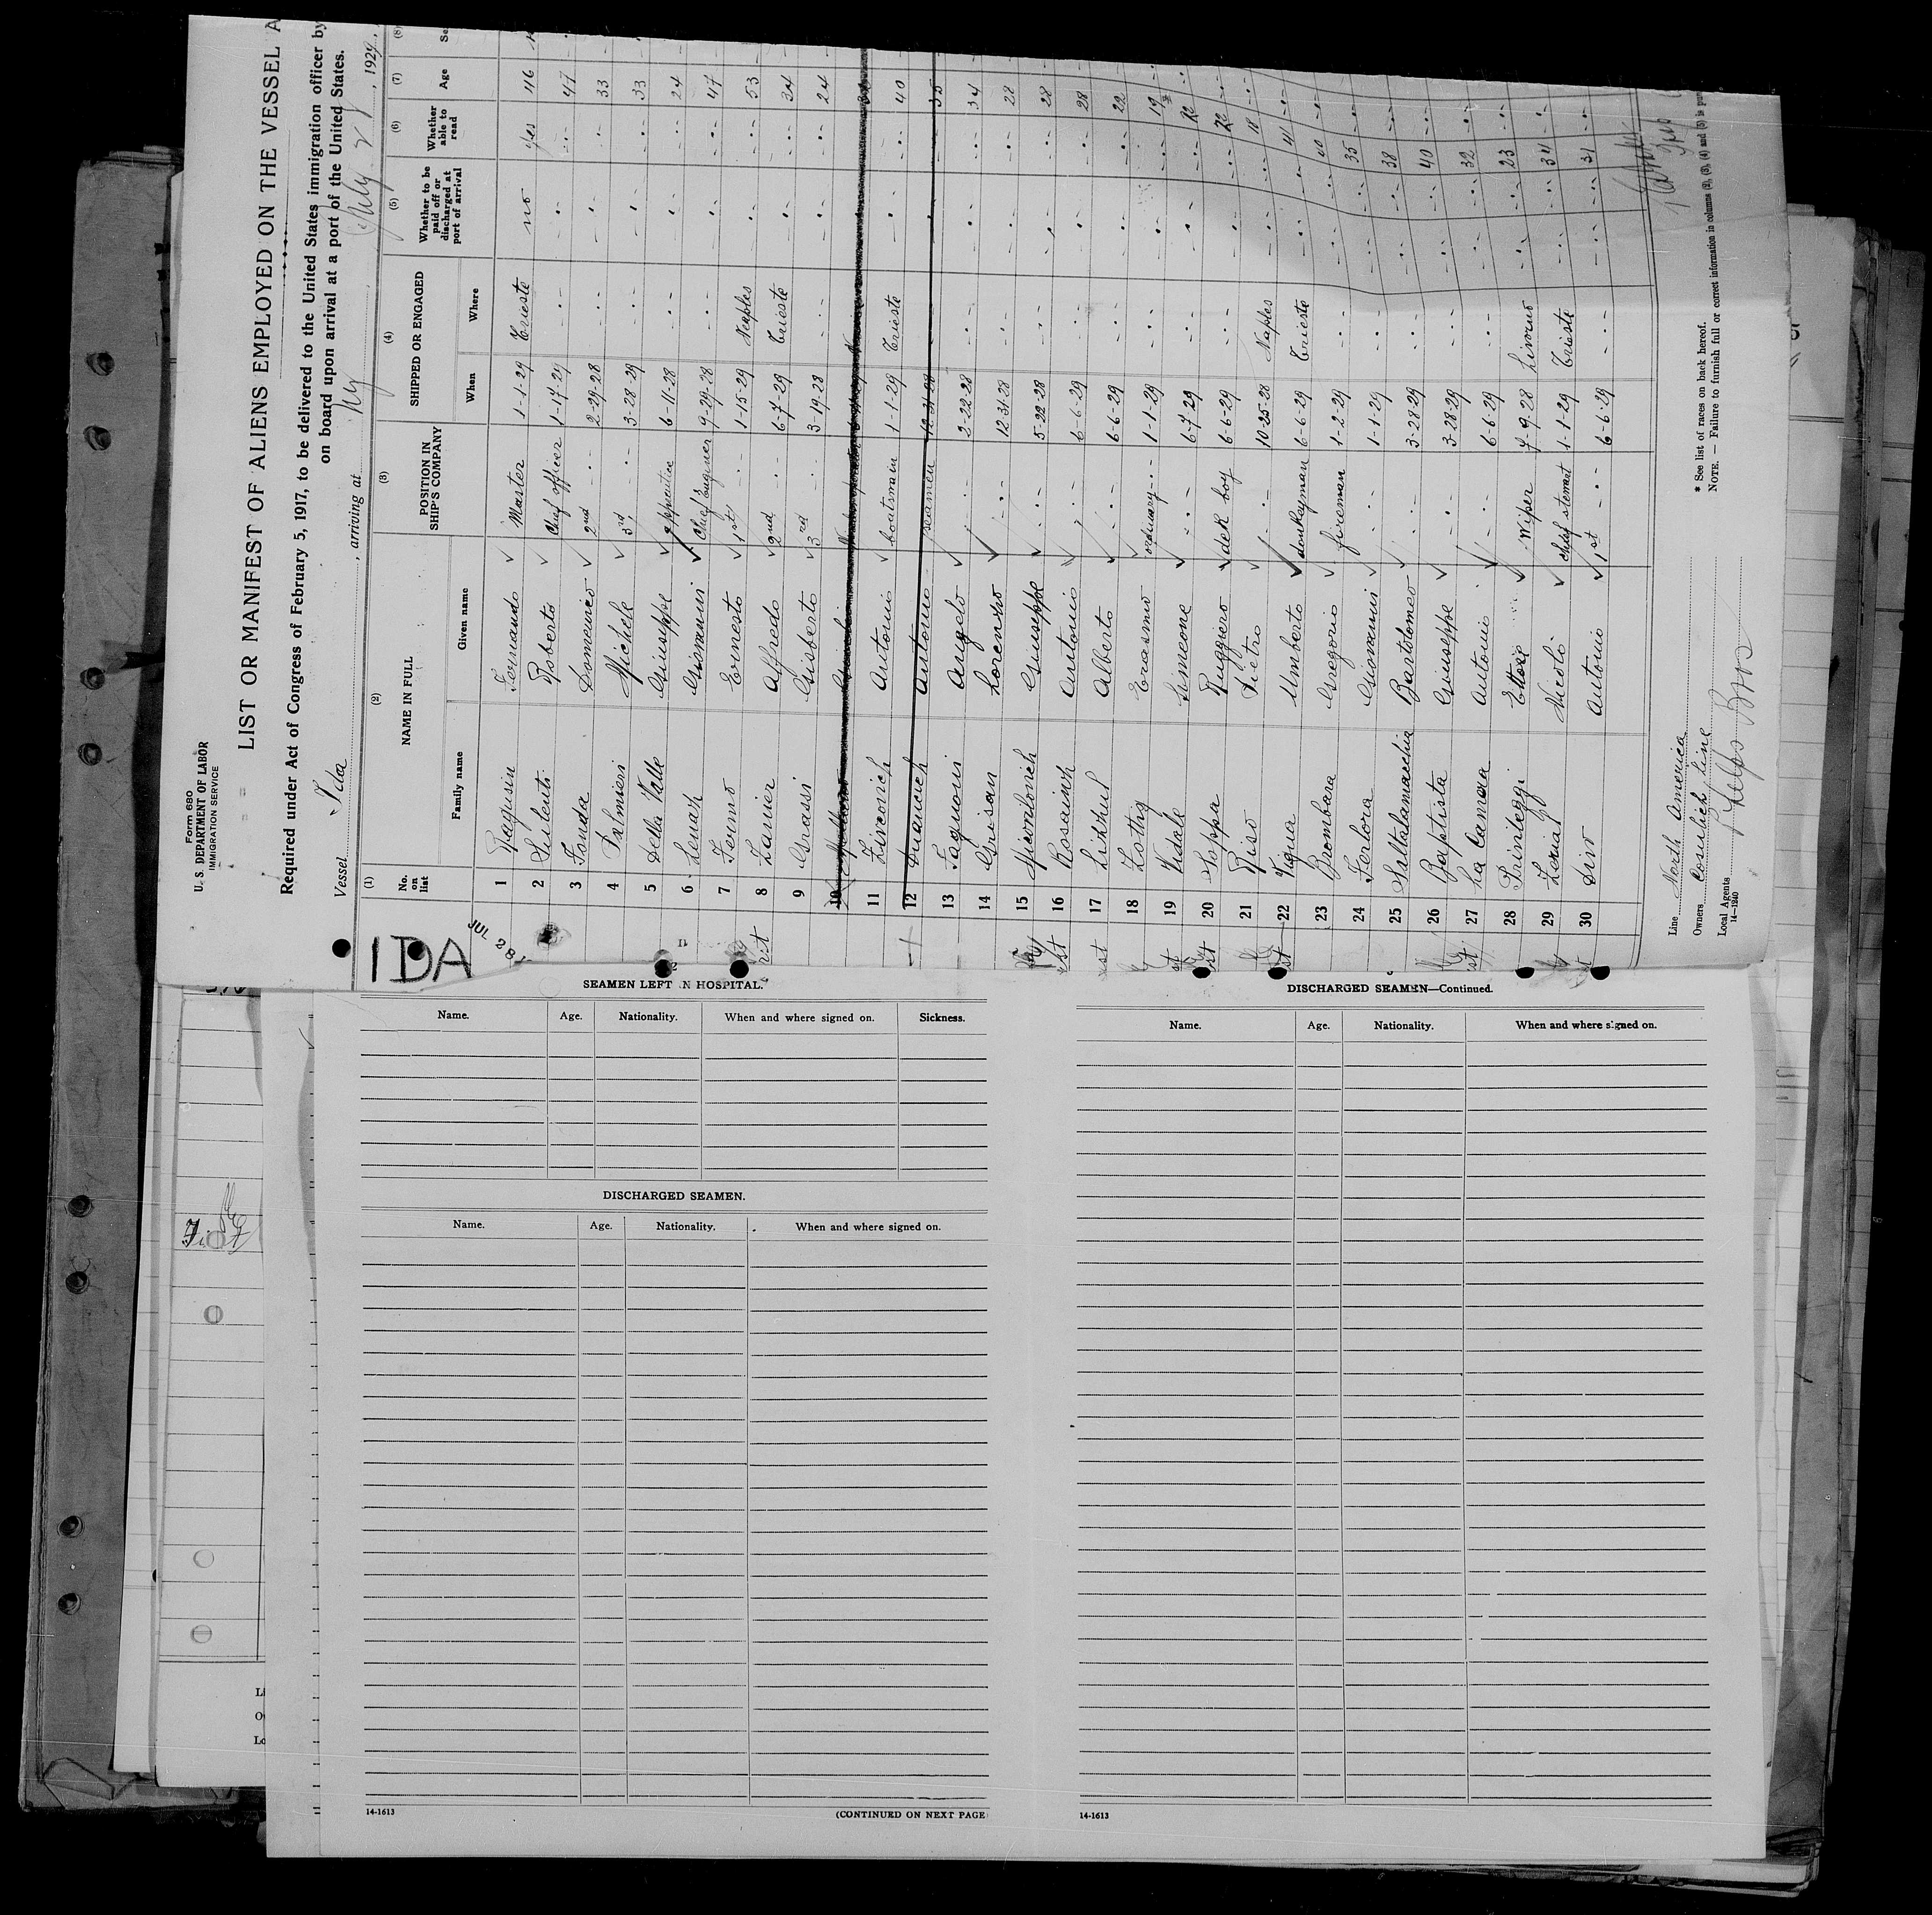 Form 680
U. S. DEPARTMENT OF LABOR
IMMIGRATION SERVICE
LIST OR MANIFEST OF ALIENS EMPLOYED ON THE VESSEL A
Required under Act of Congress of February 5, 1917, to be delivered to the United States immigration officer by
on board upon arrival at a port of the United States.
Vessel Ida, arriving at Ny, July 28, 1929,
(1) (2) (3) (4) (5) (6) (7) (8)
No. on list NAME IN FULL POSITION IN SHIP'S COMPANY SHIPPED OR ENGAGED Whether to be paid off or discharged at port of arrival Whether able to read Age Se
Family name Given name When Where
1 Ragusin Fernando Master 1-1-29 Trieste no yes 46
2 Silenti Roberto Chief officer 1-17-29 - ·· - - ·· - - ·· - 47
3 Fonda Domenico 2nd - ·· - 2-29-28 - ·· - - ·· - - ·· - 33
4 Palmieri Michele 3rd - ·· - 3-28-29 - ·· - - ·· - - ·· - 33
5 Della Valle Giuseppe apprentice 6-11-28 - ·· - - ·· - - ·· - 24
6 Giovanni Chief Engineer 9-29-28 - ·· - - ·· - - ·· - 47
7 Ernesto 1st - ·· - 1-15-29 Neaples - ·· - - ·· - 53
8 Zanier Alfredo 2nd - ·· - 6-7-29 Trieste - ·· - - ·· - 34
9 Grassi Gisberto 3rd - ·· - 3-19-28 - ·· - - ·· - - ·· - 24
10
11 Zivcovich Antonio boatswain 1-1-29 Trieste - ·· - - ·· - 40
12 Antonio seamen 12-31-28 35
13 Angelo - ·· - 2-22-28 - ·· - - ·· - - ·· - 34
14 Grisan Lorenzo - ·· - 12-31-28 - ·· - - ·· - - ·· - 28
15 Nicodovich Giuseppe - ·· - 5-22-28 - ·· - - ·· - - ·· - 28
16 Antonio - ·· - 6-6-29 - ·· - - ·· - - ·· - 28
17 Alberto - ·· - 6-6-29 - ·· - - ·· - - ·· - 22
18 Erasmo ordinary - ·· - 1-1-29 - ·· - - ·· - - ·· - 19
19 Vidale Simeone - ·· - 6-7-29 - ·· - - ·· - - ·· - 22
20 Ruggiero dek boy 6-6-29 - ·· - - ·· - - ·· - 22
21 Riso Pietro - ·· - 10-25-28 Naples - ·· - - ·· - 18
22 Umberto donkeyman 6-6-29 Trieste - ·· - - ·· - 41
23 Brombara Gregorio fireman 1-2-29 - ·· - - ·· - - ·· - 40
24 Ferlora Giovanni - ·· - 1-1-29 - ·· - - ·· - - ·· - 35
25 Saltalamacchia Bartolomeo - ·· - 3-28-29 - ·· - - ·· - - ·· - 38
26 Baptista Giuseppe - ·· - 3-28-29 - ·· - - ·· - - ·· - 40
27 La Camera Antonio - ·· - 6-6-29 - ·· - - ·· - - ·· - 32
28 Privileggi Ettore Wiper 4-9-28 Livorno - ·· - - ·· - 23
29 Nicolò chief steward 1-1-29 Trieste - ·· - - ·· - 34
30 Antonio 1st - ·· - 6-6-29 - ·· - - ·· - - ·· - 31
Line North America
Owners Cosulich Line
Local Agents Phelps Bros
14-1240
* See list of races on back hereof.
NOTE. — Failure to furnish full or correct information in columns (2), (3), (4) and (5) is pun
IDA
JUL 28
SEAMEN LEFT IN HOSPITAL.
Name. Age. Nationality. When and where signed on. Sickness.
DISCHARGED SEAMEN.
Name. Age. Nationality. When and where signed on.
14-1613
(CONTINUED ON NEXT PAGE
DISCHARGED SEAMEN—Continued.
Name. Age. Nationality. When and where signed on.
14-1613